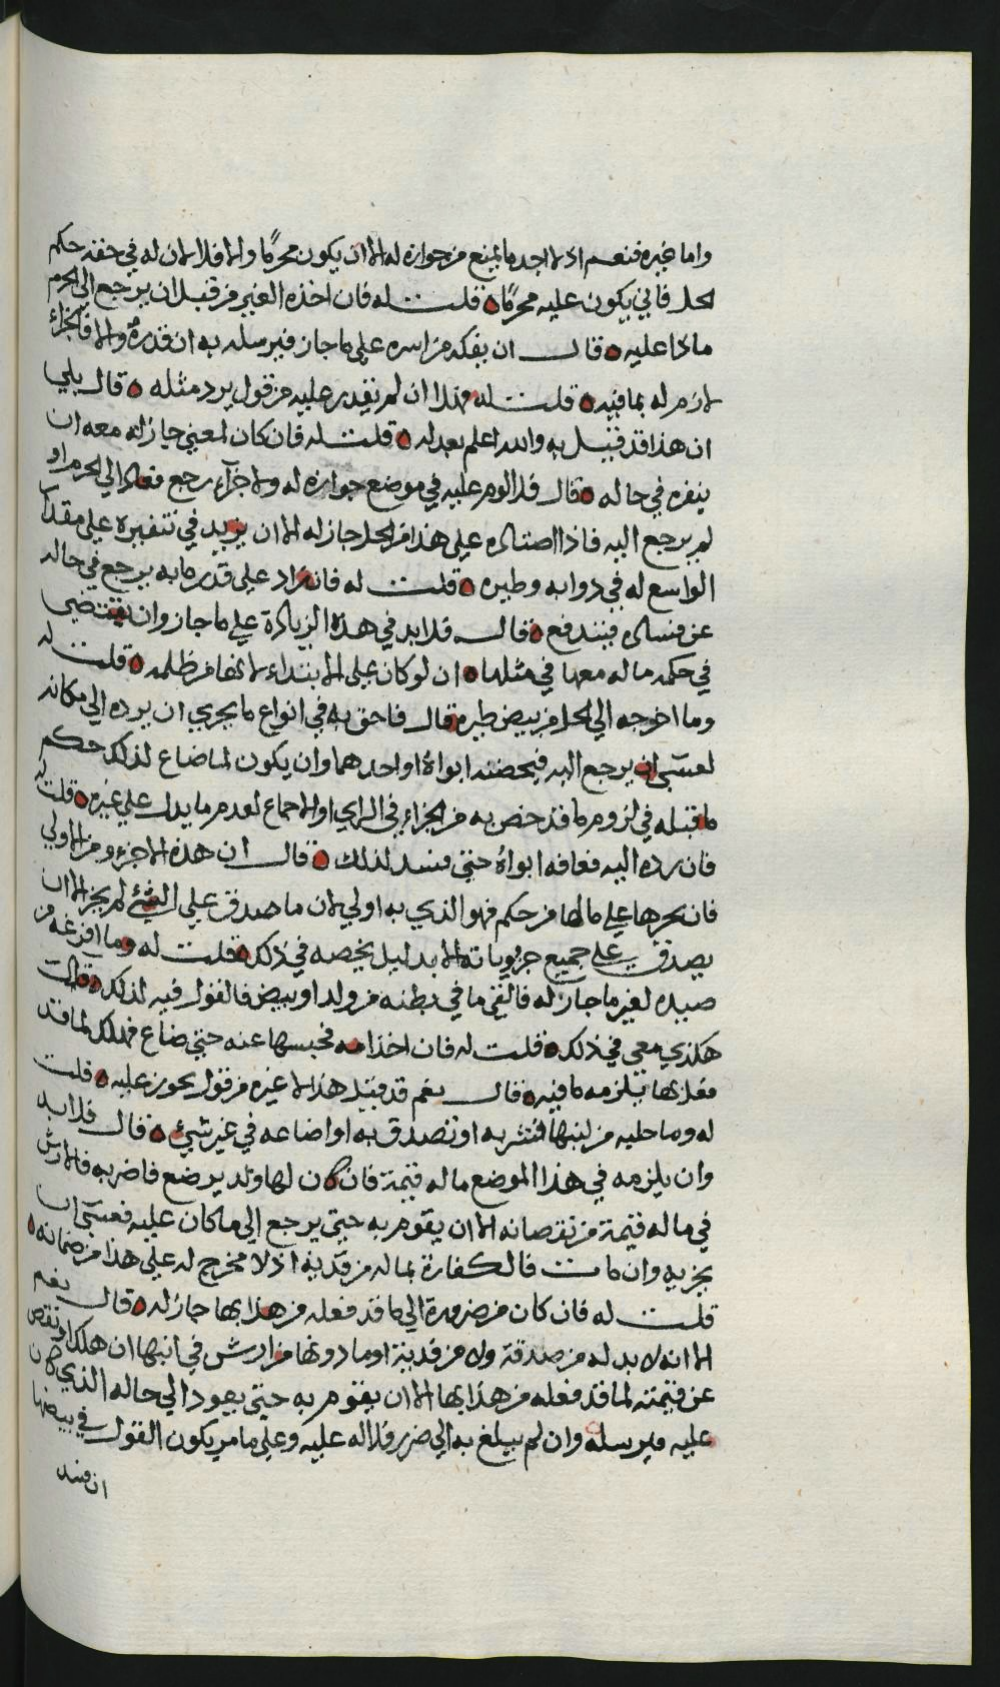 واما غيره فنعم اذ لا اجد ما يمنع من جوازه له الا ان يكون محرما والا فلا لان له في حقه حكم
الحل فاني يكون عليه محرما قلت له فان اخذه الغير من قبل ان يرجع الي الحرم
ماذا عليه قال ان يفكه من اسره علي ما جاز فيرسله به ان قدره والا فالجزاء
لازم له بما فيه قلت له فهذا ان لم يقدر عليه من قول يرد مثله قال بلي
ان هذا قد قيل به والله اعلم بعدله قلت له فان كان لمعني جاز له معه ان
ينفره في حاله قال فلا لوم عليه في موضع جوازه له ولا جزآء رجع فعاد الي الحرم او
لم يرجع اليه فاذا اصتاده علي هذا من الحل جاز له الا ان يزيد في تنفيره علي مقدار
الواسع له في دوابه وطيره قلت له فان زاد علي قدر ما به يرجع في حاله
عن فساده فيندفع قال فلا بد في هذه الزيادة علي ما جاز وان يقتضي
في حكمه ما له معها في مثلها ان لو كان علي الابتداء لانها من ظلمه قلت له
وما اخرجه الي الحل من بيض طيره قال فاحق به في انواع ما يجري ان يرده الي مكانه
لعسي ان يرجع اليه فيحضنه ابواه او احدهما وان يكون لما ضاع لذلك حكم
ما قتله في لزوم ما قد خص به من الجزاء في الراي او الاجماع لعدم ما يدل علي غيره قلت له
فان رده اليه فعافه ابواه حتي فسد لذلك قال ان هذه لاجزء من الاولي
فان يجرها علي ما لها من حكم فهو الذي به اولي لان ما صدق علي الشئ لم يجز الا ان
يصدق علي جميع جزوياته الا بدليل يخصه في ذلك قلت له وما افزعه من
صيده لغير ما جاز له فالقي ما في بطنه من ولد او بيض فالقول فيه لذلك قال
هكذي معي في ذلك قلت له فان اخذ امه فحبسها عنه حتي ضاع فهلك لما قد
فعله بها يلزمه ما فيه قال نعم قد قيل هذا لا غيره من قول يجوز عليه قلت
له وما حلبه من لبنها فشربه او تصدق به او اضاعه في غير شيئ قال فلا بد
وان يلزمه في هذا الموضع ما له قيمة فان كان لها ولد يرضع فاضر به فالارش
في ما له قيمة من نقصانه الا ان يقوم به حتي يرجع الي ما كان عليه فعسي ان
يجزيه وان مات فالكفارة بما له من فدية اذ لا مخرج له علي هذا من ضمانه
قلت له فان كان من ضرورة الي ما قد فعله من هذا بها جاز له قال نعم
الا انه لا بد له من صدقة ولا من فدية او ما دونها من ارش في ابنها ان هلك او نقص
عن قيمته لما قد فعله من هذا بها الا ان يقوم به حتي يعود الي حاله الذي كان
عليه فيرسله وان لم يبلغ به الي ضرر فلا له عليه وعلي ما مر يكون القول في بيضها
ان فسد